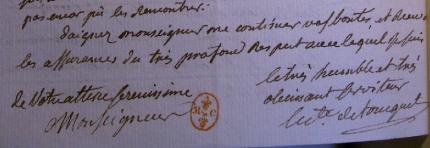 pas encor pu les Rencontrer.
daignez monseigneur me continuer vos bontés, et Recevoir
les assurances du très profond Respect avec lequel je suis
de Votre altesse serenissime
Monseigneur
le très humble et très
obeissant serviteur
M C